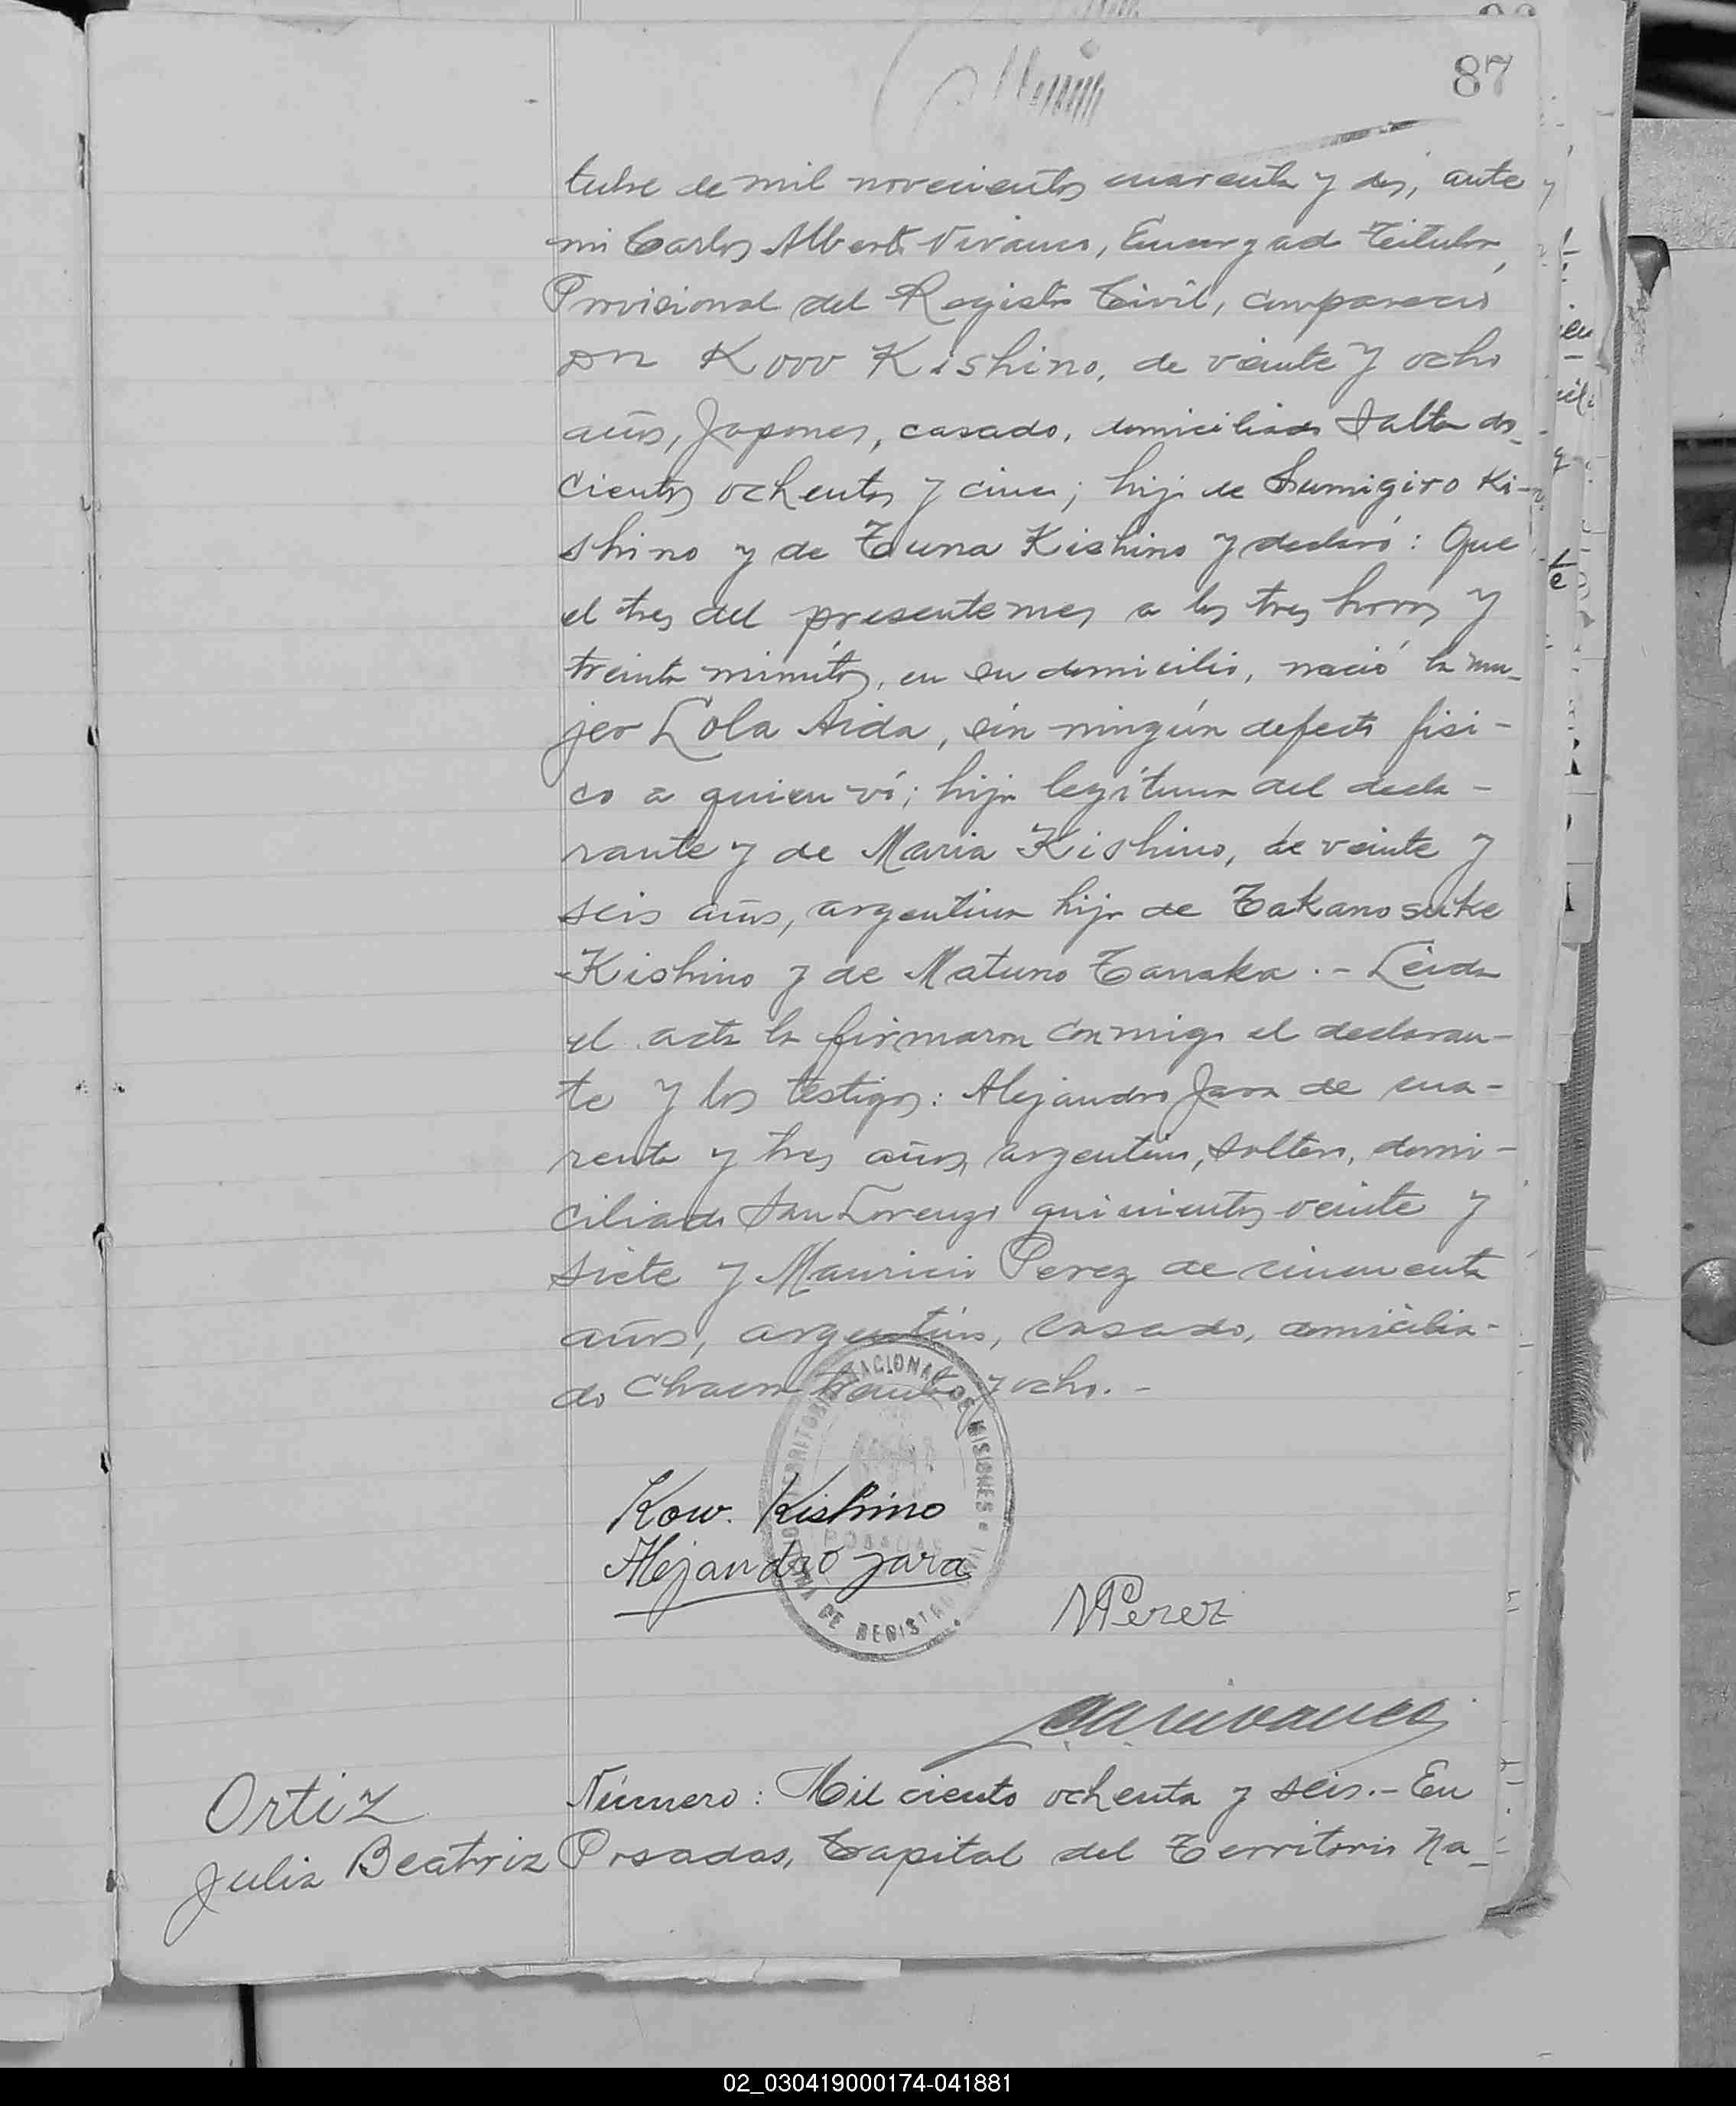 87
tubre de mil novecientos cuarenta y dos, ante
mi Carlos Alberto Vivanco, Encargado Titular
Provisional del Registro Civil, compareció
Dn Koov Kishino, de veinte y ocho
años, Japones, casado, domiciliado Salta dos-
cientos ochenta y cinco; hijo de Sumigiro Ki-
shino y de Tzuna Kishino y declaró: Que
el tres del presente mes a las tres horas y
treinta minutos, en su domicilio, nació la mu-
jer Lola Aida, sin ningún defecto fisi-
co a quien ví; hija legítima del decla-
rante y de Maria Kishino, de veinte y
seis años, argentina hija de Takanosuke
Kishino y de Matuno Tanaka.- Leida
el acta la firmaron conmigo el declaran-
te y los testigos: Alejandro Jara de cua-
renta y tres años, argentino, soltero, domi-
ciliado San Lorenzo quinientos veinte y
siete y Mauricio Perez de cincuenta
años, argentino, casado, domicilia-
do Chaco treinta y ocho.-
TERRITORIO NACIONAL DE MISIONES
POSADAS
DE REGISTRO
Kow. Kishino
Alejandro Jara
MPerez
CAVivanco
Ortiz
Julia Beatriz
Número: Mil ciento ochenta y seis.- En
Posadas, Capital del Territorio Na-
02_030419000174-041881